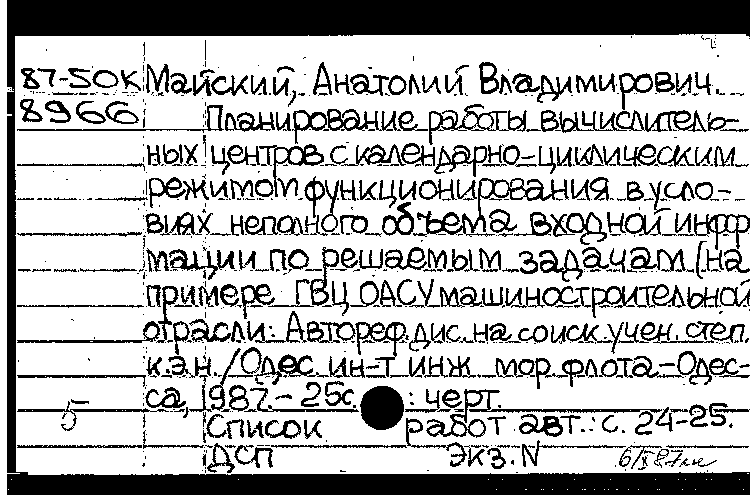 87-50К Майский, Анатолий Владимирович.
8966 Планирование работы вычислитель-
ных центров с календарно-циклическим
режимом функционирования в усло-
виях неполного объема входной инфор
мации по решаемым задачам (на
примере ГВЦ ОАСУ машиностроительной
отрасли: Автореф. дис. на соиск. учен. степ.
к.э.н. / Одес. ин-т инж. мор. флота.-Одес-
са, 1987.- 25с. : черт.
5 Список работ авт.: с. 24-25.
ДСП ЭКЗ. N